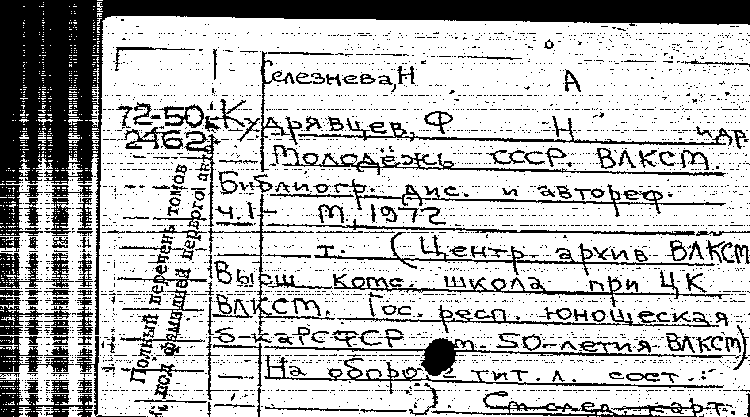 Селезнева, Н А
72-50к
2462
Кудрявцев, Ф Н и др
Молодёжь СССР. ВЛКСМ.
Библиогр. дис. и автореф.
ч. 1- М., 1972
т. (Центр. архив ВЛКСМ
Высш комс. школа при ЦК
ВЛКСМ. Гос. респ. юношеская
б-ка РСФСР им. 50-летия ВЛКСМ)
На обороте тит. л. сост.:
См след карт.
Полный перечень томов
под фамилией первого авт